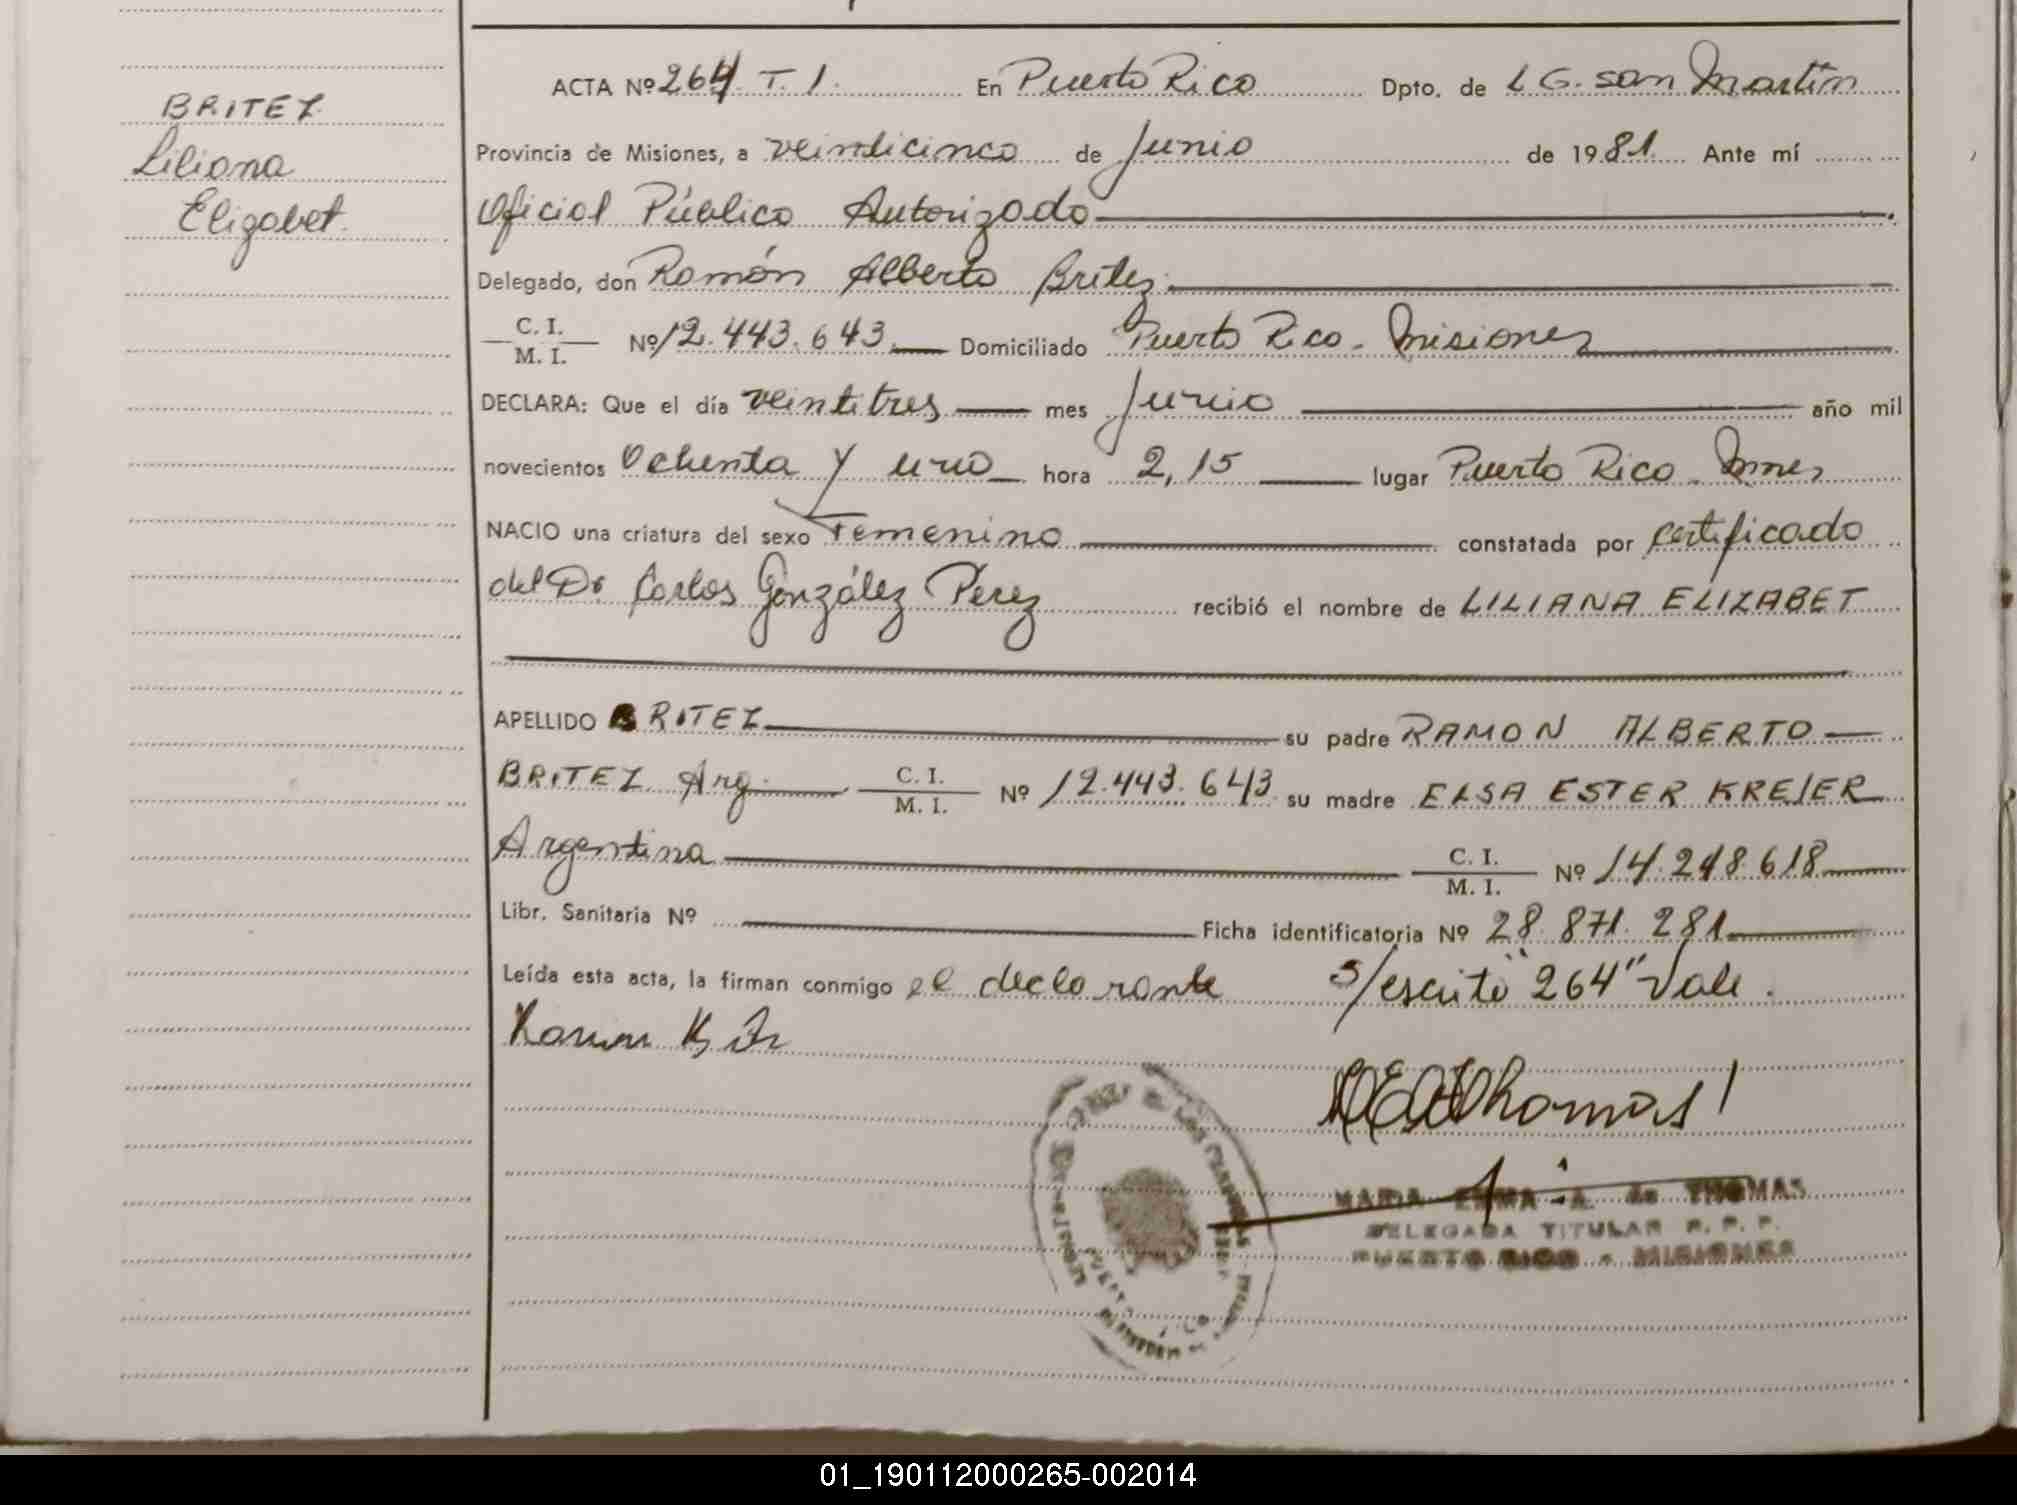 BRITEZ
Liliana
Elizabet
ACTA Nº 264 T. 1. En Puerto Rico Dpto. de L G. San Martín
Provincia de Misiones, a veinticinco de Junio de 1981. Ante mí
Oficial Público Autorizado
Delegado, don Ramón Alberto Britez
C. I.
M. I. Nº 12.443.643 Domiciliado Puerto Rico - Misiones
DECLARA: Que el día veintitres mes Junio año mil
novecientos Ochenta y uno hora 2,15 lugar Puerto Rico - Mnes
NACIO una criatura del sexo Femenino constatada por certificado
del Dr Carlos González Pérez recibió el nombre de LILIANA ELIZABET
APELLIDO BRITEZ su padre RAMON ALBERTO
BRITEZ Arg. C. I.
M. I. Nº 12.443.643 su madre ELSA ESTER KREIER
Argentina C. I.
M. I. Nº 14.248.618
Libr. Sanitaria Nº Ficha identificatoria Nº 28.871.281
Leída esta acta, la firman conmigo el declarante s/escrito "264" Vale.
MARIA EMMA A. de THOMAS
DELEGADA TITULAR R. P. P.
PUERTO RICO - MISIONES
01_190112000265-002014